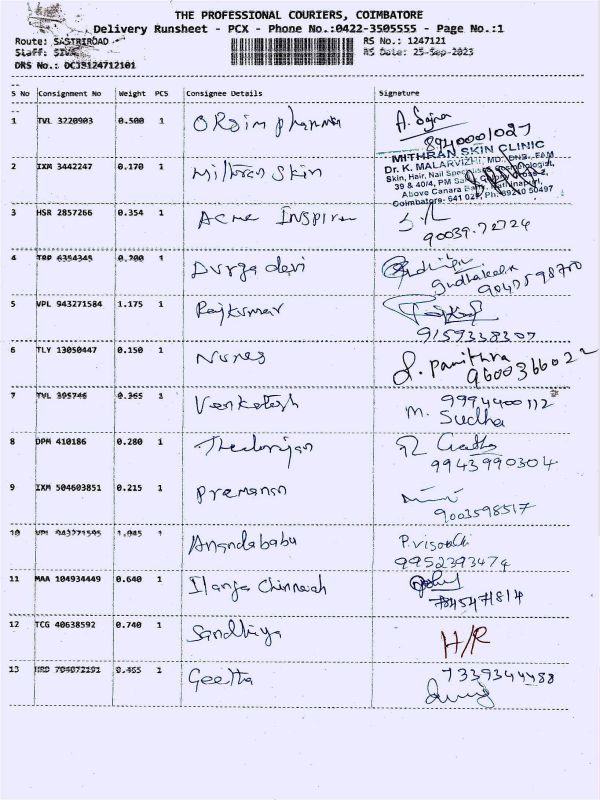 THE PROFESSIONAL COURIERS, COIMBATORE
Delivery Runsheet - PCX - Phone No.:0422-3505555 - Page No.:1
Route: SASTRIROAD RS No.: 1247121
Staff: SIVA RS Date: 25-Sep-2023
DRS No.:
S No Consignment No Weight PCS Consignee Details Signature
1 TVL 3220903 0.500 1
8940001027
2 IXM 3442247 0.170 1 Mithran Skin
MITHRAN SKIN CLINIC
Dr. K. MALARVIZHI, MD., DNB., FAM
Skin, Hair, Nail
39 & 40/4, PM
Above Canara
Coimbatore- 641 02 Ph: 89210 50497
3 HSR 2857266 0.354 1 Acme Inspire
90039.72724
4 TRP 6354345 0.200 1 Durga devi
5 VPL 943271584 1.175 1 Rajkumar
9159338307
6 TLY 13050447 0.150 1
P. Pavithra
9600366022
7 TVL 395746 0.365 1 Venkatesh
9994400112
M. Sudha
8 DPM 410186 0.280 1
Geetha
9943990304
9 IXM 504603851 0.215 1 Premanan
9003598517
10 VPL 943271595 1.045 1 Anandababu
9952393474
11 MAA 104934449 0.640 1
12 TCG 40638592 0.740 1 Sandhiya
H/R
13 704072191 0.455 1 Geetha
7339344488